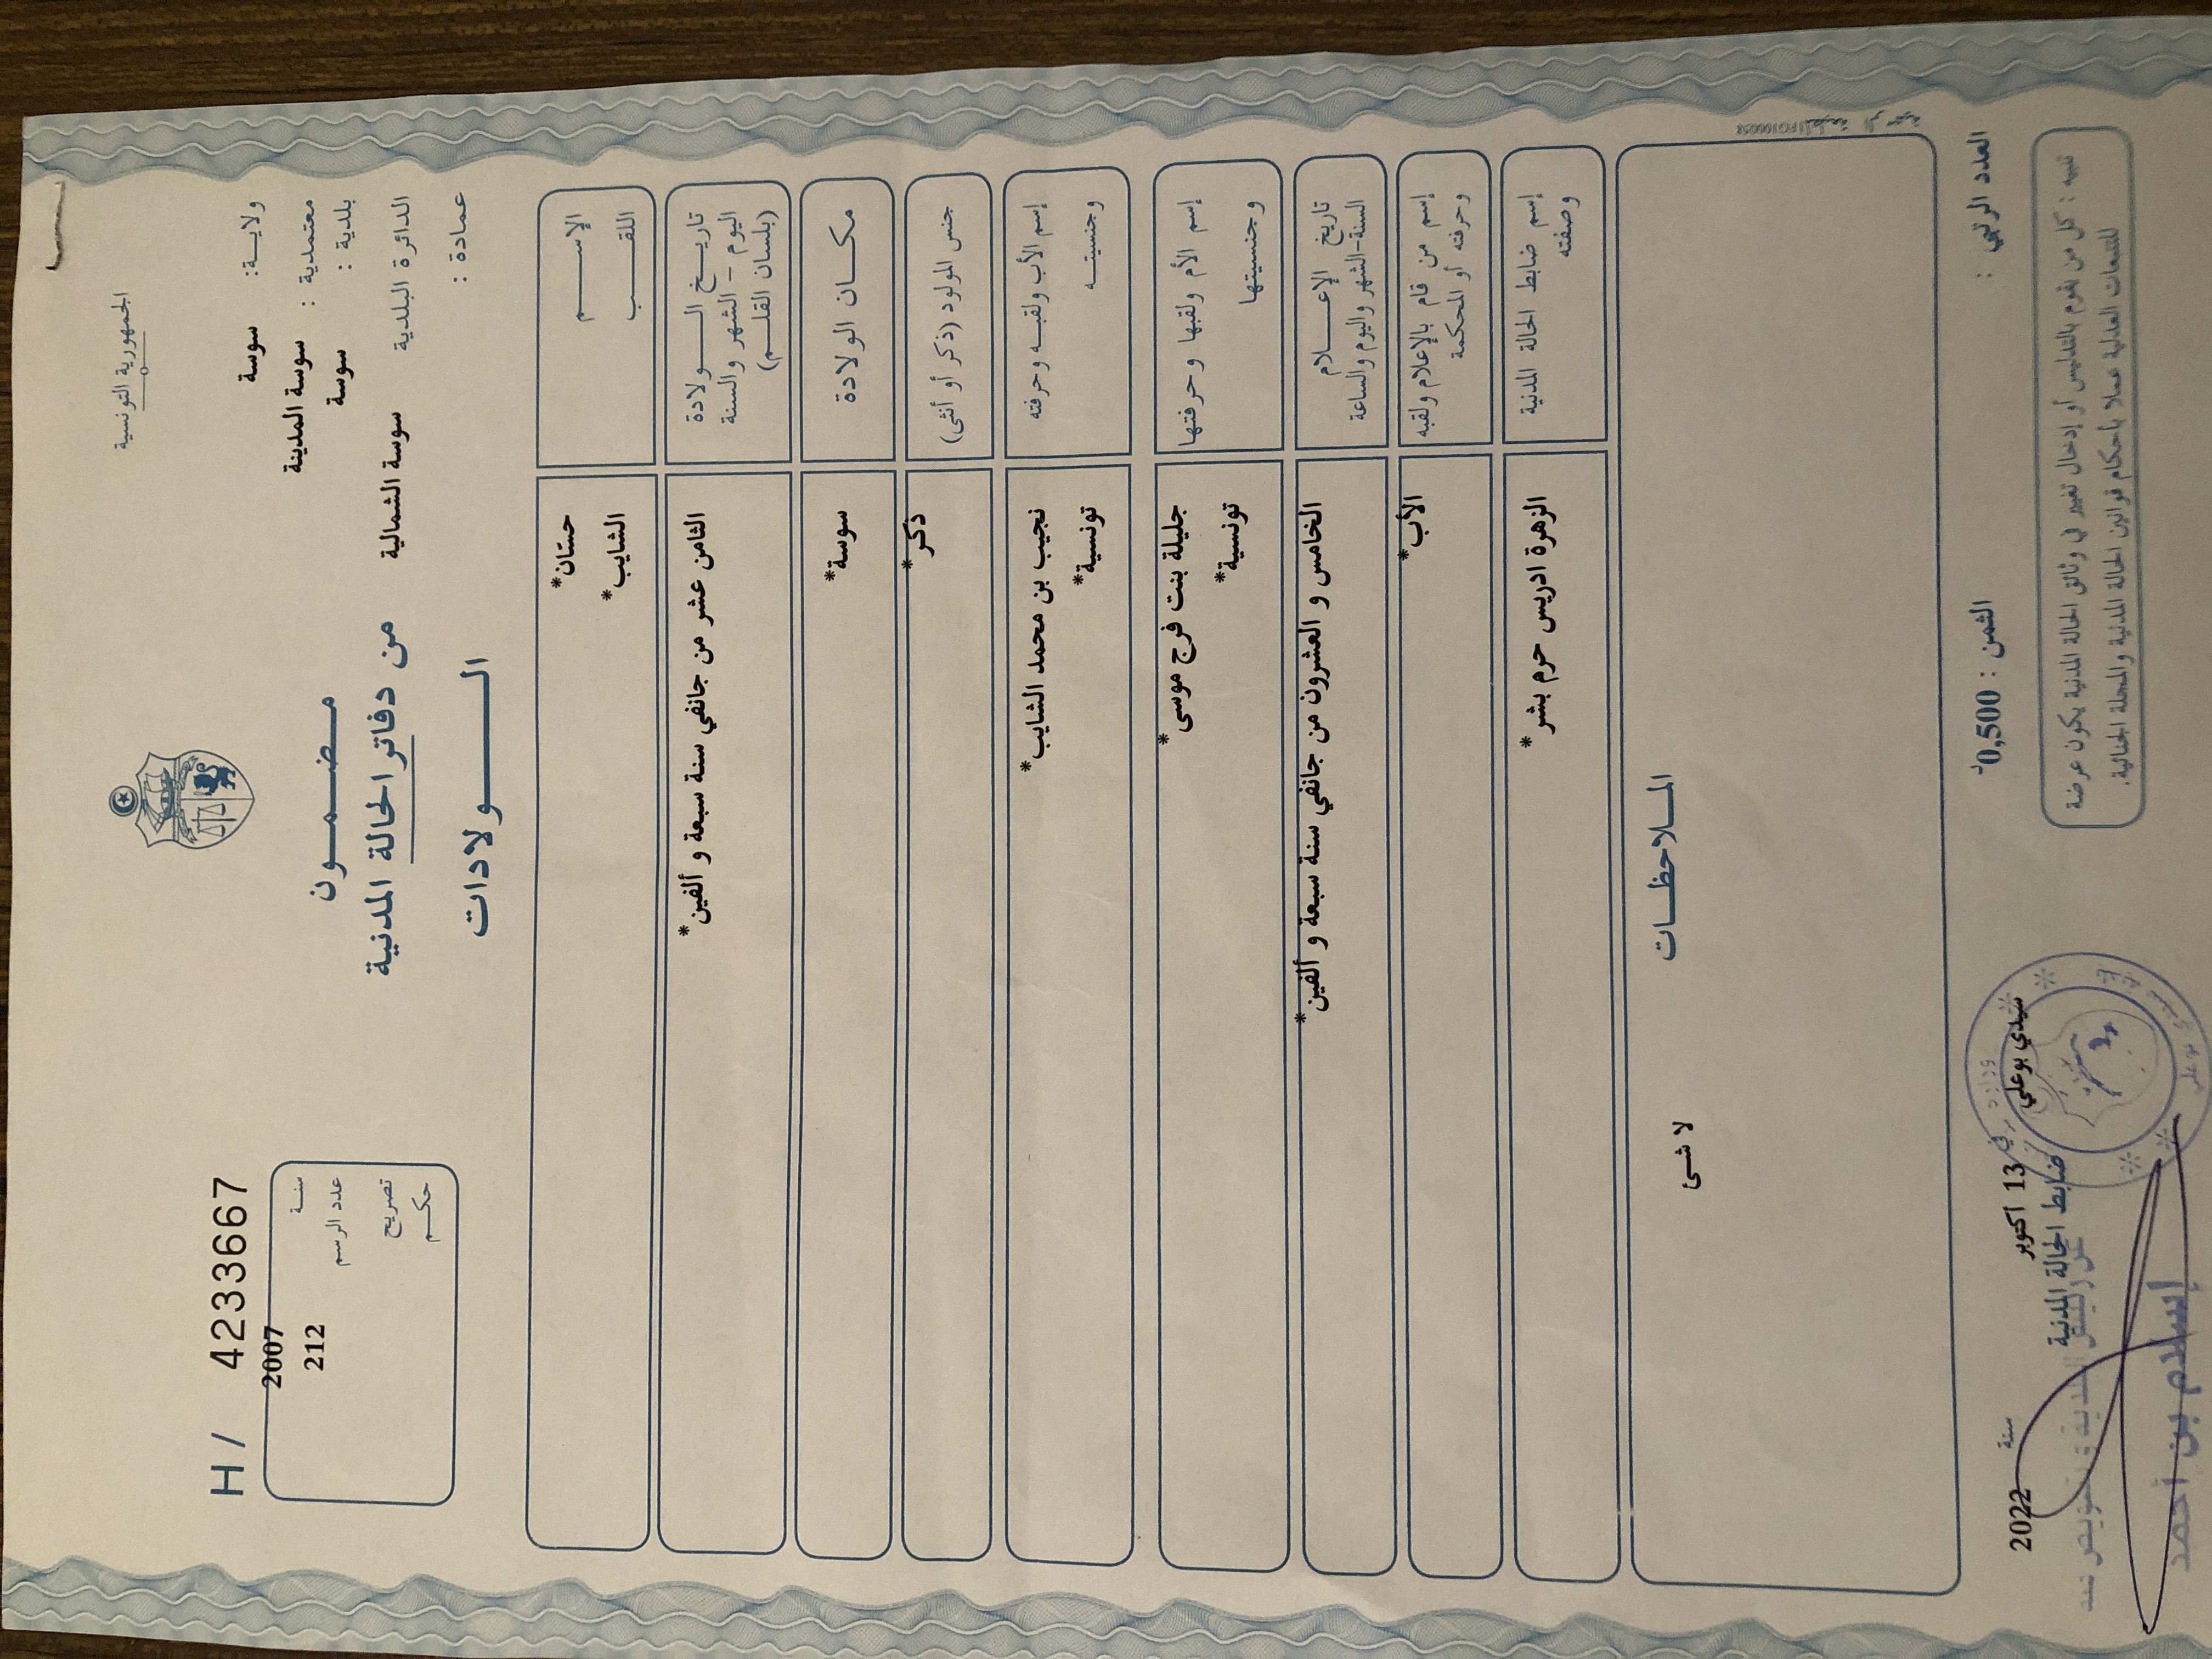 الجمهورية التونسية
ولاية: سوسة
معتمدية : سوسة المدينة
بلدية : سوسة
الدائرة البلدية سوسة الشمالية
عمادة :
مضمون
من دفاتر الحالة المدنية
الولادات
H / 4233667
سنة 2007
عدد الرسم 212
تصريح
حكم
الإسم حسّان*
اللقب الشايب*
تاريخ الولادة الثامن عشر من جانفي سنة سبعة و ألفين*
اليوم - الشهر والسنة
(بلسان القلم)
مكان الولادة سوسة*
جنس المولود (ذكر أو أنثى) ذكر*
إسم الأب ولقبه وحرفته نجيب بن محمد الشايب*
وجنسيته تونسية*
إسم الأم ولقبها وحرفتها جليلة بنت فرج موسى*
وجنسيتها تونسية*
تاريخ الإعلام الخامس و العشرون من جانفي سنة سبعة و ألفين*
السنة-الشهر واليوم والساعة
إسم من قام بالإعلام ولقبه الأب*
وحرفته أو المحكمة
إسم ضابط الحالة المدنية الزهرة ادريس حرم بشر*
وصفته
الملاحظات
لا شئ
العدد الرتبي :
الثمن : 0,500د
سيدي بوعلي 13 اكتوبر سنة 2022
ضابط الحالة المدنية
إسلام بن أحمد
تنبيه : كل من يقوم بالتدليس أو إدخال تغيير في وثائق الحالة المدنية يكون عرضة
للتتبعات العدلية عملا بأحكام قوانين الحالة المدنية والمجلة الجنائية.